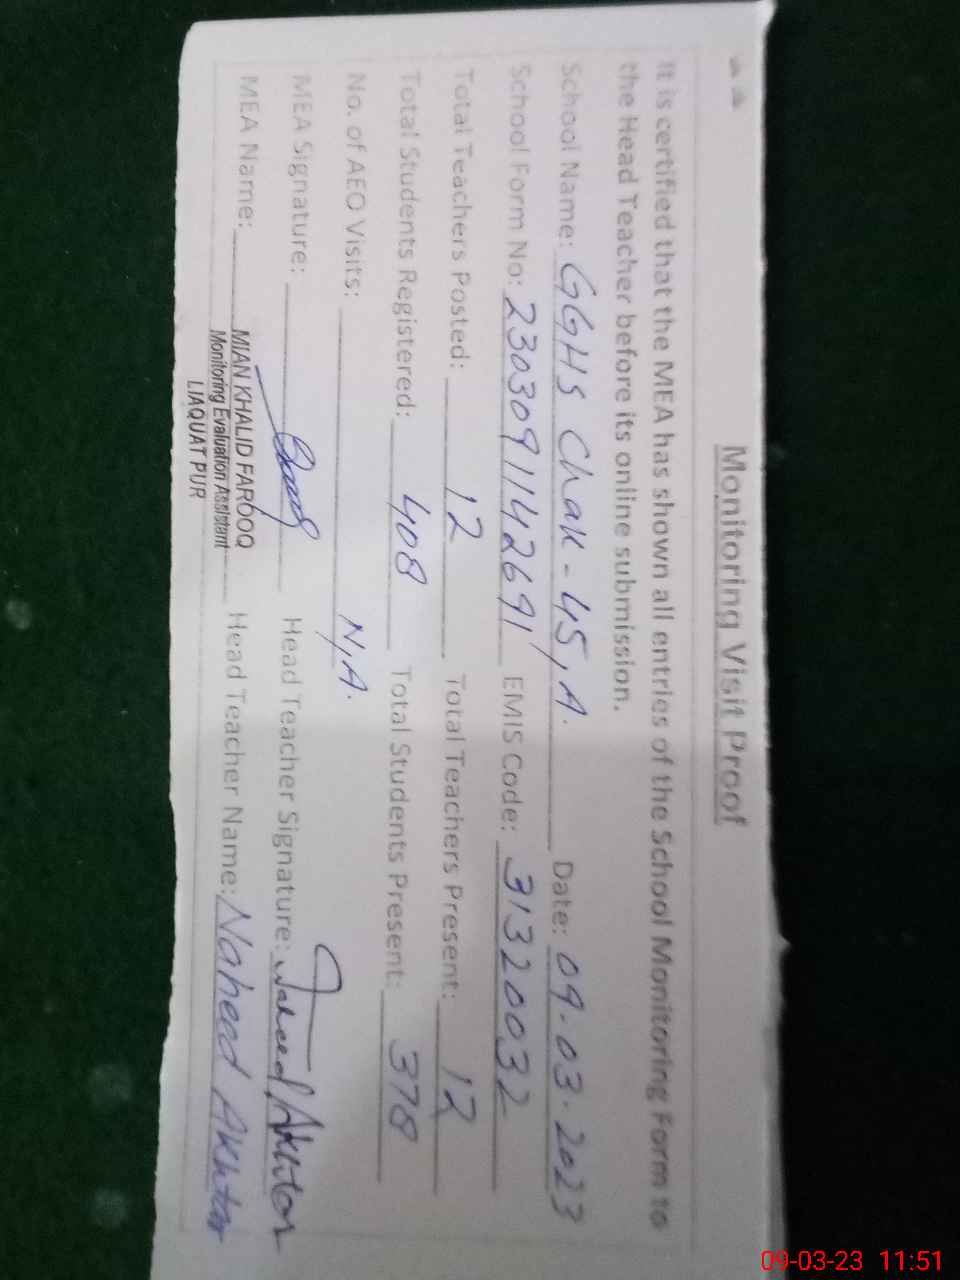 Monitoring Visit Proof
It is certified that the MEA has shown all entries of the School Monitoring Form to
the Head Teacher before its online submission.
School Name: GGHS Chak-45,A. Date: 09-03-2023
School Form No: 230309114 2691 EMIS Code: 31320032
Total Teachers Posted: 12 Total Teachers Present: 12
Total Students Registered: 408 Total Students Present: 378
No. of AEO Visits: N,A.
MEA Signature: Head Teacher Signature: Naheed Akhtar
MEA Name: MIAN KHALID FAROOQ Head Teacher Name: Naheed Akhtar
Monitoring Evaluation Assistant
LIAQUAT PUR
09-03-23 11:51